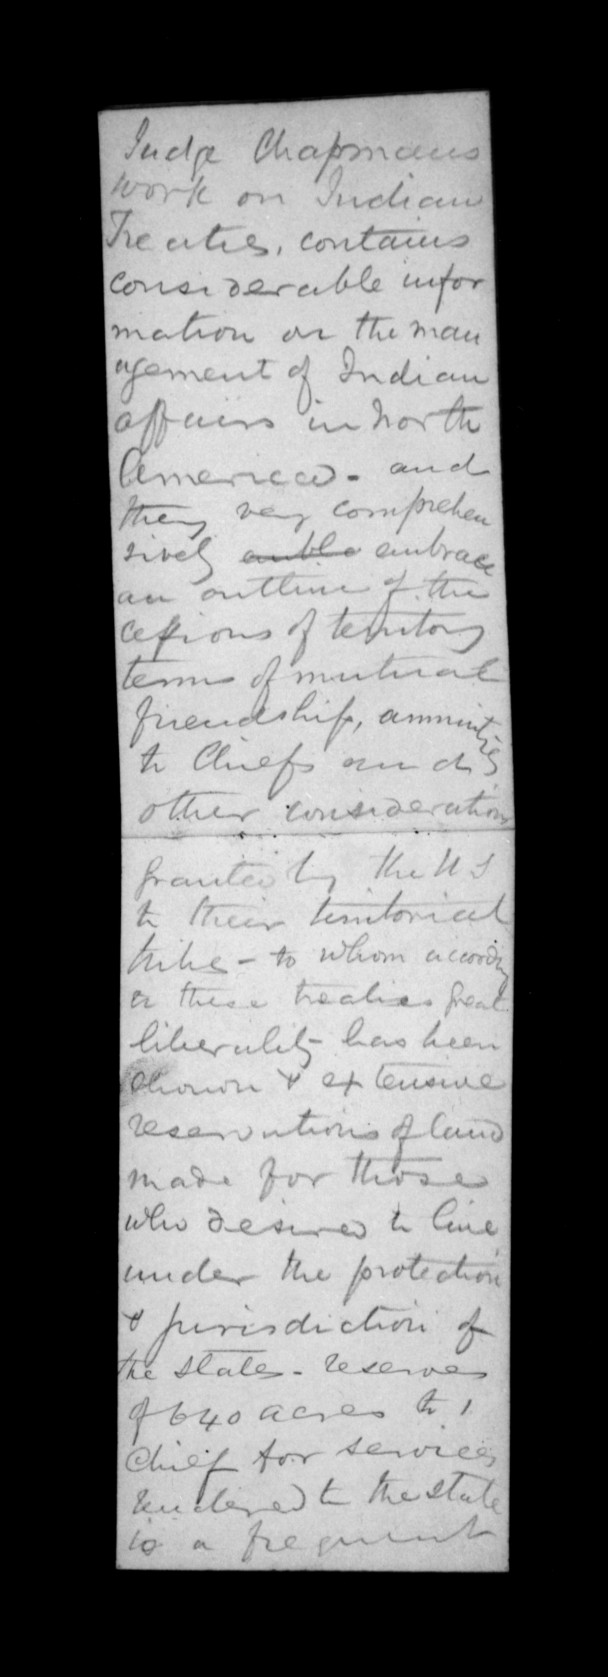 Judge Chapmans
work on Indian
Treaties, contains
considerable infor
mation on the man
agement of Indian
affairs in North
America - and
they very comprehen
sively embrace
an outline of the
cessions of territory
terms of mutual
friendship, annuities
to Chiefs and
other considerations
granted by the U S
to their territorial
tribe - to whom according
to these treaties great
liberality has been
shown & extensive
reservations of land
made for those
who desired to live
under the protection
& jurisdiction of
the states - reserves
of 640 acres to 1
Chief for services
rendered to the state
is a frequent